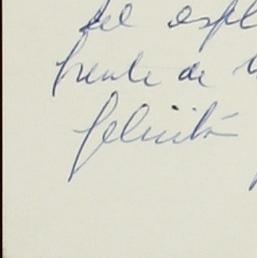 del espl
frente de
felicitó